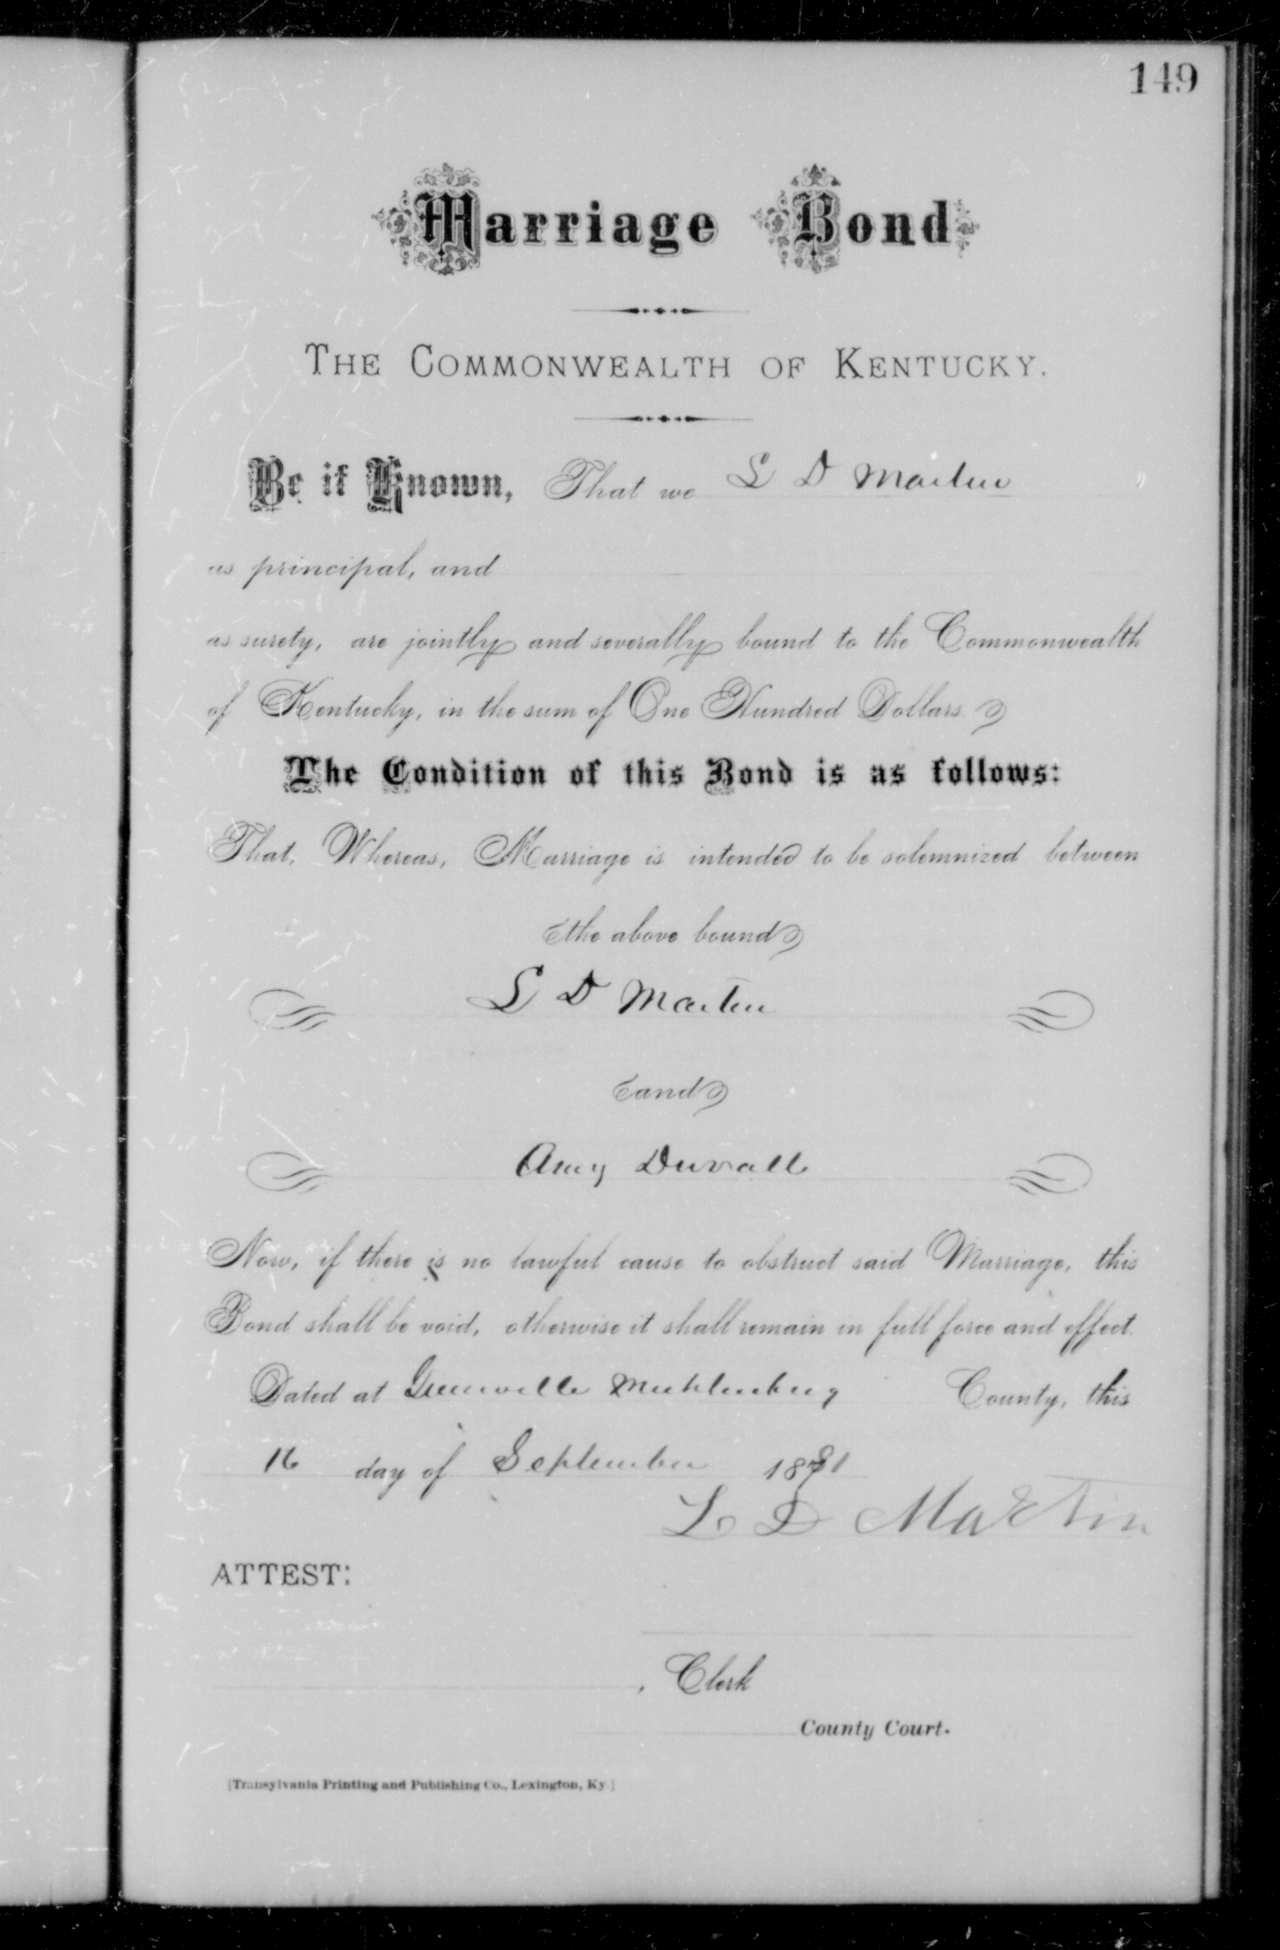 149
Marriage Bond
THE COMMONWEALTH OF KENTUCKY.
Be it Known, That we L D Martin
as principal, and
as surety, are jointly and severally bound to the Commonwealth
of Kentucky, in the sum of One Hundred Dollars.
The Condition of this Bond is as follows:
That, Whereas, Marriage is intended to be solemnized between
the above bound
L D Martin
and
Amy Duvall
Now, if there is no lawful cause to obstruct said Marriage, this
Bond shall be void, otherwise it shall remain in full force and effect.
Dated at Greenville Muhlenburg County, this
16 day of September 1881
L D Martin
ATTEST:
, Clerk
County Court.
[Transylvania Printing and Publishing Co., Lexington, Ky.]